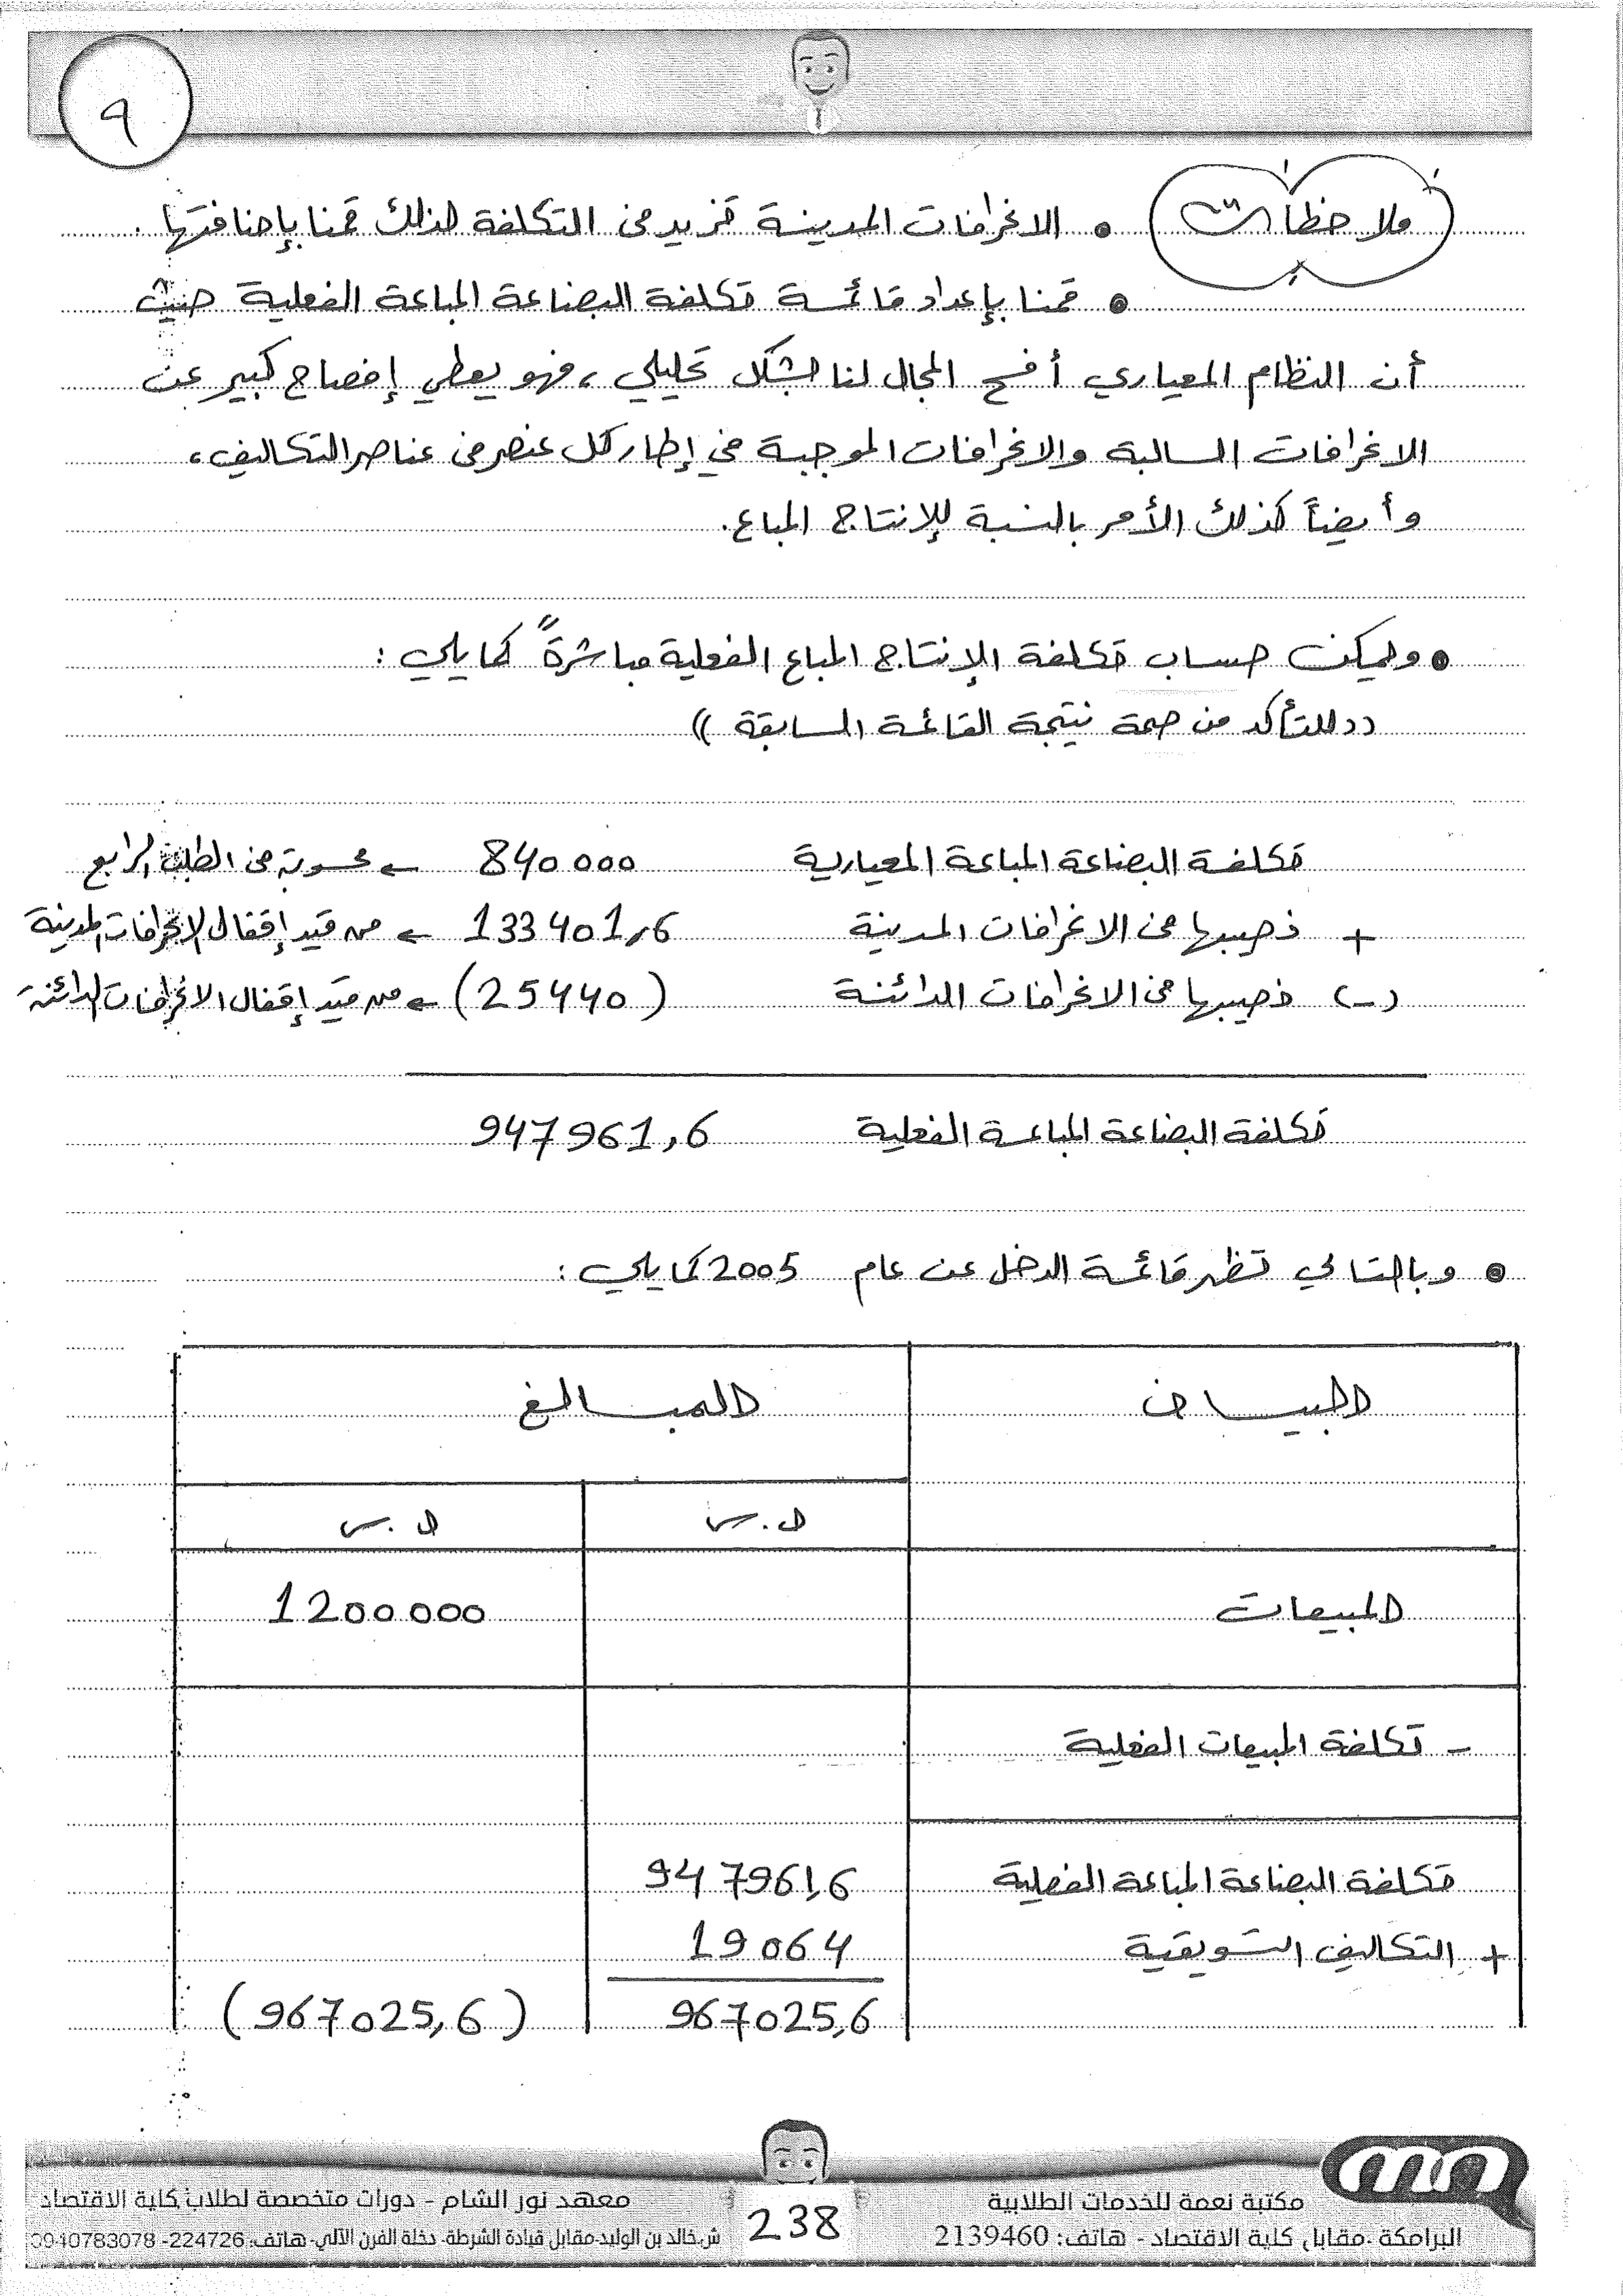 ٩
ملاحظات • الانحرافات المدينة تزيد من التكلفة لذلك قمنا بإضافتها .
• قمنا بإعداد قائمة تكلفة البضاعة المباعة الفعلية حيث
أن النظام المعياري أفسح المجال لنا بشكل تحليلي ، فهو يعطي إفصاح كبير عن
الانحرافات السالبة والانحرافات الموجبة في إطار كل عنصر من عناصر التكاليف ،
وأيضاً كذلك الأمر بالنسبة للإنتاج المباع .
• ويمكن حساب تكلفة الإنتاج المباع الفعلية مباشرةً كما يلي :
(( للتأكد من صحة نتيجة القائمة السابقة ))
تكلفة البضاعة المباعة المعيارية 840000 ← محسوبة من الطلب الرابع
+ نصيبها من الانحرافات المدينة 133401,6 ← من قيد إقفال الانحرافات المدينة
(-) نصيبها من الانحرافات الدائنة (25440) ← من قيد إقفال الانحرافات الدائنة
تكلفة البضاعة المباعة الفعلية 947961,6
• وبالتالي تظهر قائمة الدخل عن عام 2005 كما يلي :
البيان المبالغ
ل.س ل.س
المبيعات 1200000
- تكلفة المبيعات الفعلية
تكلفة البضاعة المباعة الفعلية 947961,6
+ التكاليف التسويقية 19064
967025,6 (967025,6)
مكتبة نعمة للخدمات الطلابية
البرامكة .مقابل كلية الاقتصاد - هاتف: 2139460
238
معهد نور الشام - دورات متخصصة لطلاب كلية الاقتصاد
ش.خالد بن الوليد-مقابل قيادة الشرطة- دخلة الفرن الآلي- هاتف: 224726- 0940783078